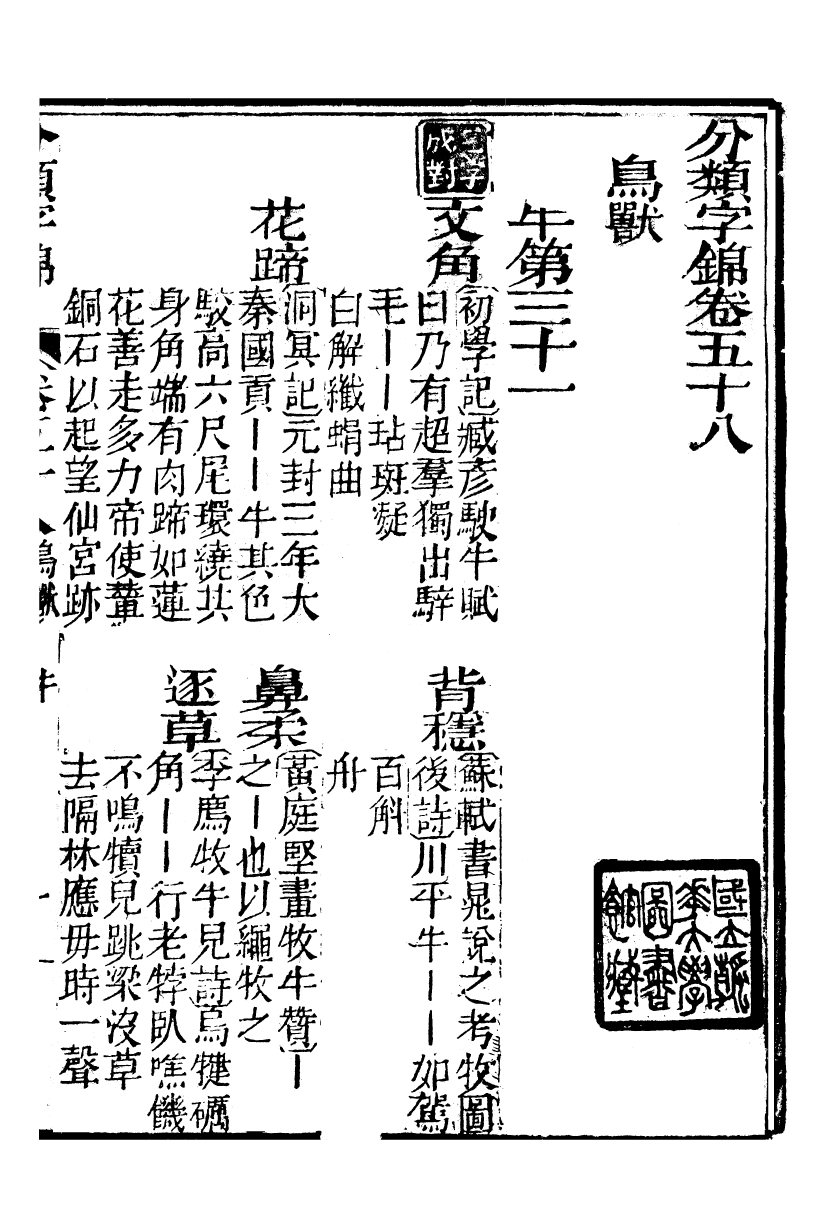 分類字錦卷五十八
鳥獸
牛第三十一
二字成對
文角
初學記臧彥駛牛賦
曰乃有超羣獨出騂
毛丨丨玷斑凝
白解纖蜎曲
背穩
蘇軾書晁說之考牧圖
後詩川平牛丨丨如駕
百斛
舟
花蹄
洞冥記元封三年大
秦國貢丨丨牛其色
駮高六尺尾環繞其
身角端有肉蹄如蓮
花善走多力帝使輦
銅石以起望仙宮跡
鼻柔
黃庭堅畫牧牛贊丨
之丨也以繩牧之
逐草
李廌牧牛兒詩烏犍礪
角丨丨行老牸臥噍饑
不鳴犢兒跳梁沒草
去隔林應毋時一聲
分類字錦
卷五十八鳥獸
牛
一
國立清
華大學
圖書
館藏